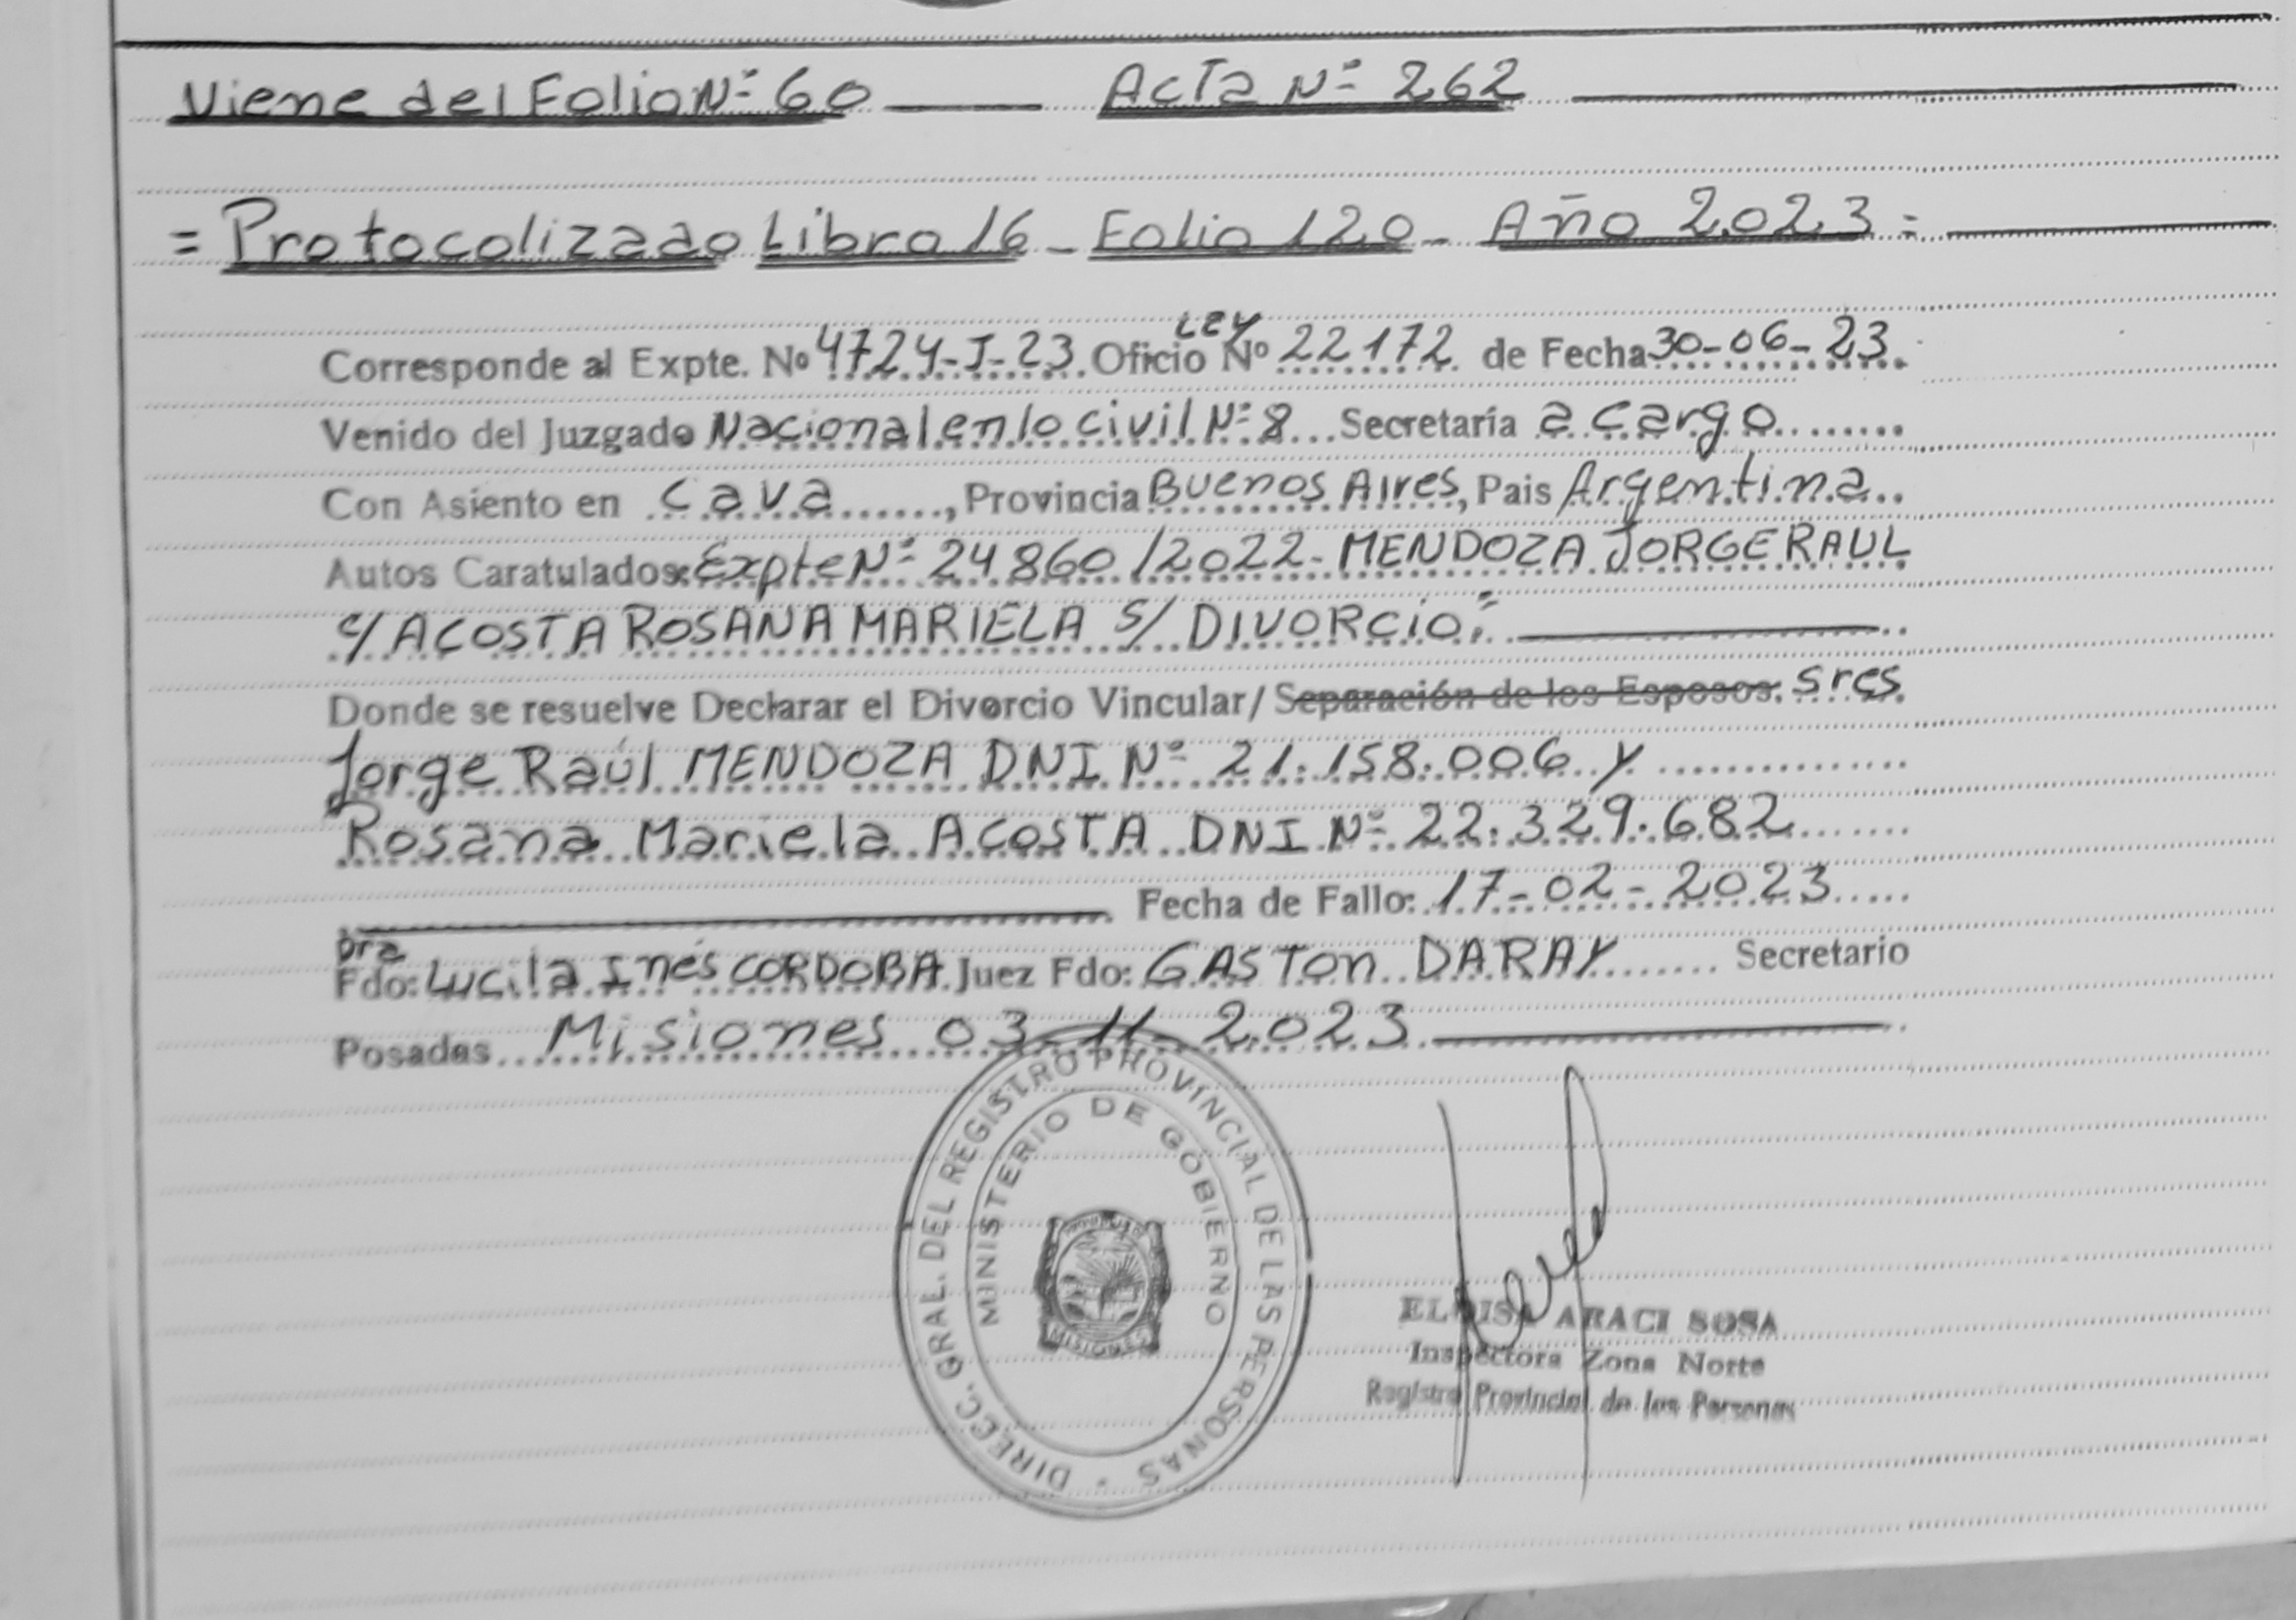 Viene del Folio Nº 60 — Acta Nº 262 —
= Protocolizado Libro 16 - Folio 120 - Año 2023 = —
Ley
Corresponde al Expte. Nº 4724-I-23 Oficio Nº 22172 de Fecha 30-06-23
Venido del Juzgado Nacional en lo civil Nº 8 Secretaría a cargo
Con Asiento en Cava, Provincia Buenos Aires, Pais Argentina
Autos Caratulados: Expte Nº 24860/2022- MENDOZA JORGE RAUL
c/ ACOSTA ROSANA MARIELA S/ DIVORCIO" —
Donde se resuelve Declarar el Divorcio Vincular/ Separación de los Esposos. Sres.
Jorge Raúl MENDOZA DNI Nº 21.158.006 y
Rosana Mariela ACOSTA DNI Nº 22.329.682
Fecha de Fallo: 17-02-2023
Dra
Fdo: Lucila Inés CORDOBA Juez Fdo: GASTON DARAY Secretario
Posadas Misiones 03-11-2023 —
DIRECC. GRAL. DEL REGISTRO PROVINCIAL DE LAS PERSONAS
MINISTERIO DE GOBIERNO
MISIONES
ELOISA ARACI SOSA
Inspectora Zona Norte
Registro Provincial de las Personas